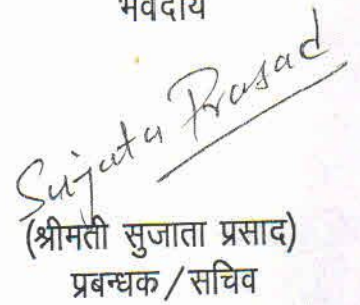 भवदीय
Sujata Prasad
(श्रीमती सुजाता प्रसाद)
प्रबन्धक / सचिव